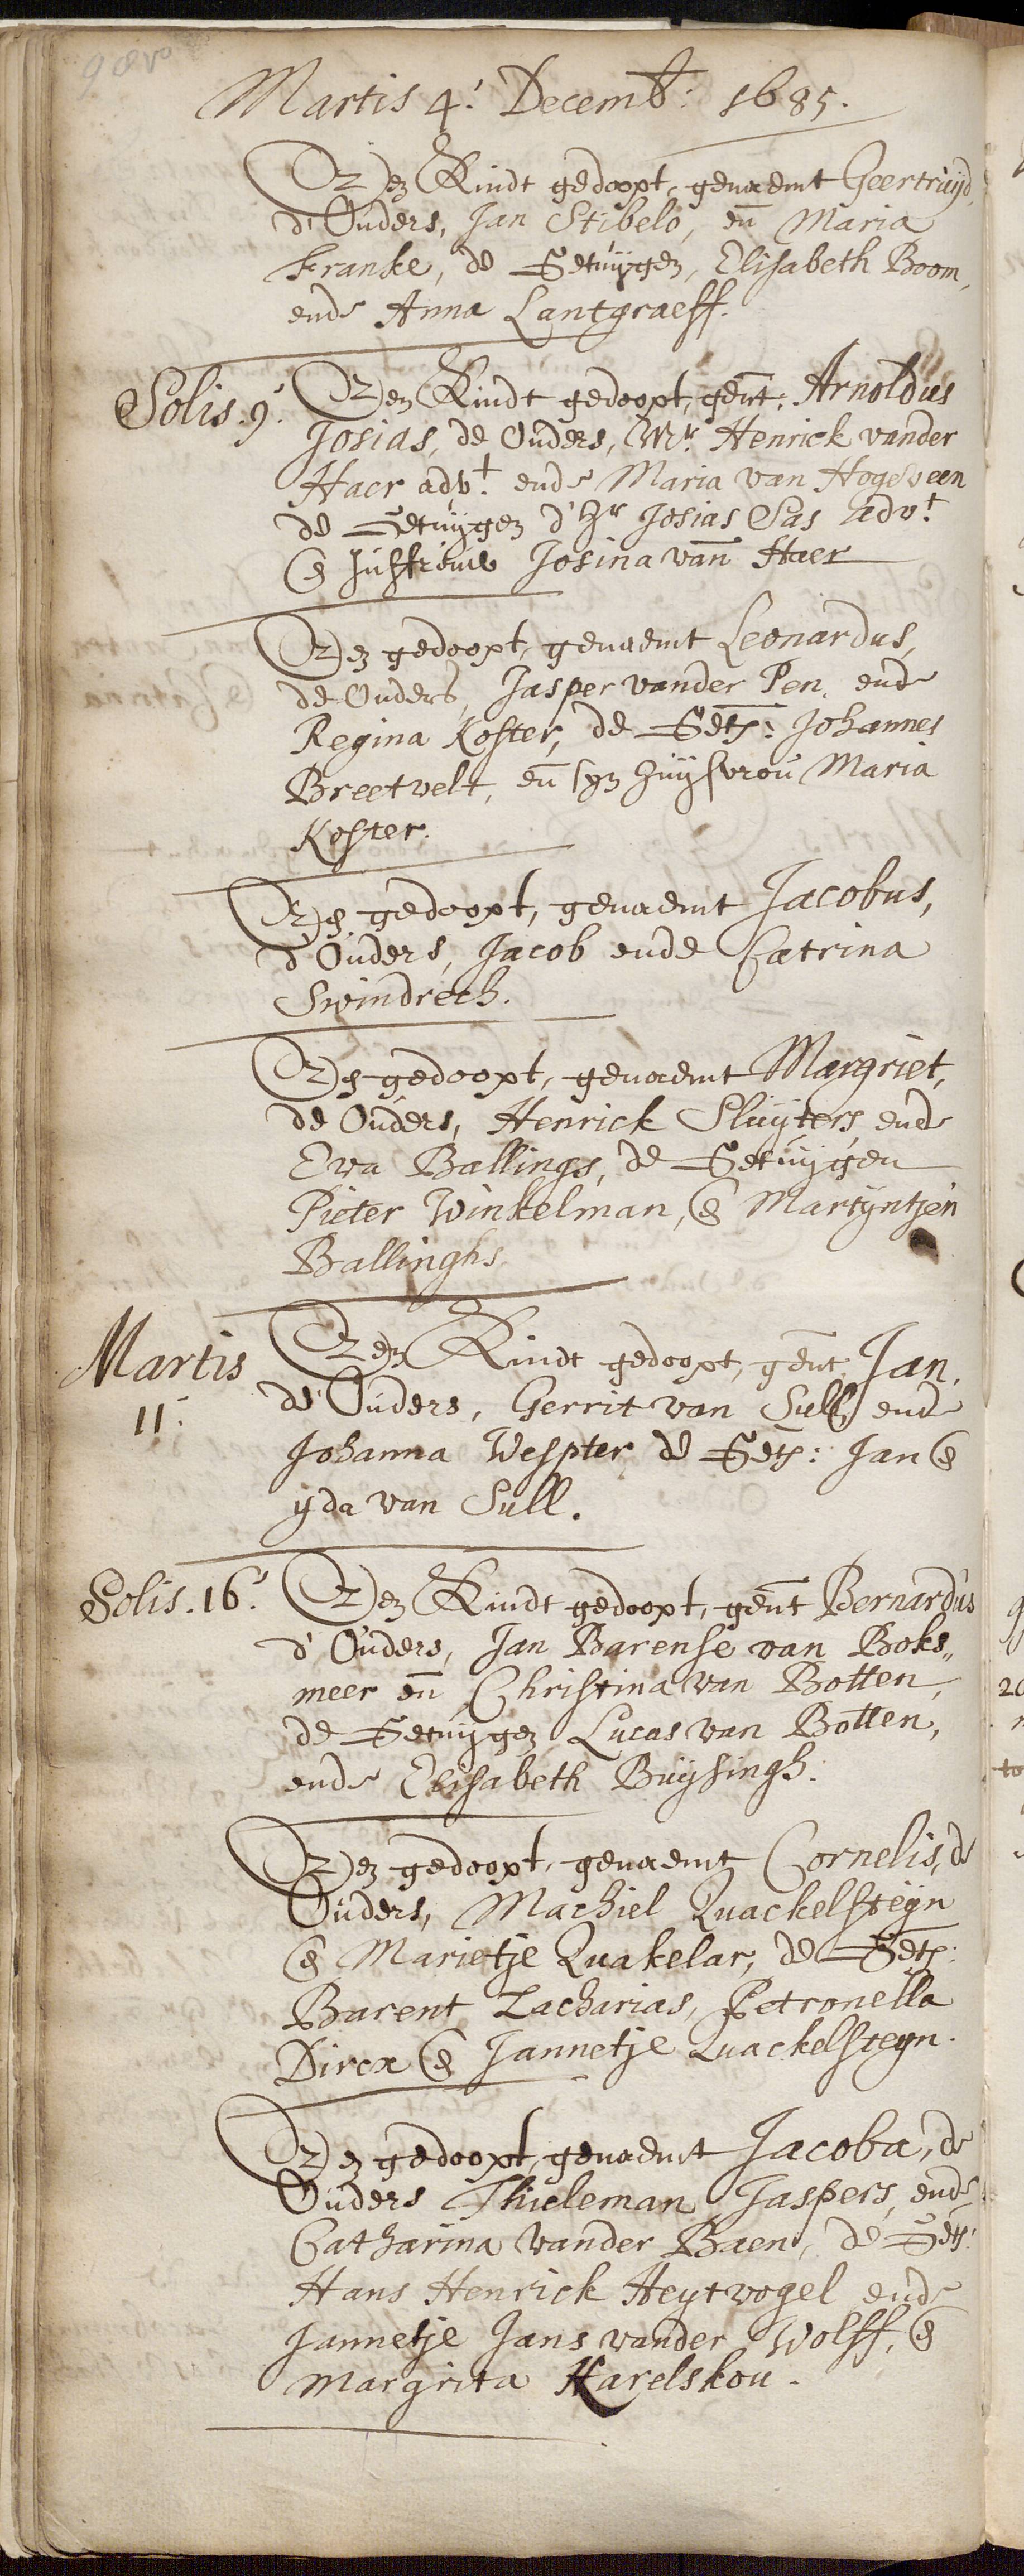 98vo
Martis 4.' Decemb: 1685.
Een Kindt gedoopt, genaemt Geertruijd,
d'Ouders, Jan Stibelo, en̄ Maria
Franke, de Getuijgen, Elisabeth Boom,
ende Anna Lantgraeff.
Solis. 9.' Een Kindt gedoopt, gen̄t: Arnoldus
Josias, de Ouders, Mr. Henrick vander
Haer advt. ende Maria van Hogeveen
de Getuijgen d'Hr Josias Sas advt.
& Juffrouw Josina van̄ Haer
Een gedoopt, genaemt Leonardus,
de Ouders, Jasper vander Pen, ende
Regina Koster, de Getz: Johannes
Breetvelt, en̄ syn huijsvrou Maria
Koster.
Een gedoopt, genaemt Jacobus,
d'Ouders, Jacob ende Catrina
Swindrech.
Een gedoopt, genaemt Margriet,
de Ouders, Henrick Sluijters ende
Eva Ballings, de Getuijgen
Pieter Winkelman, & Martijntjen
Ballinghs.
Martis Een Kindt gedoopt, gen̄t Jan,
11.' de Ouders, Gerrit van Sull ende
Johanna Wespter de Getz: Jan &
yda van Sull.
Solis. 16.' Een Kindt gedoopt, gen̄t Bernardus
d'Ouders, Jan Barense van Boks„
meer en̄ Christina van Botten,
de Getuijgen Lucas van Botten,
ende Elisabeth Buijsingh.
Een gedoopt, genaemt Cornelis, de
Ouders, Machiel Quackelsteijn
& Marietje Quakelar, de Getz:
Barent Zacharias, Petronella
Dircx & Jannetje Quackelsteyn.
Een gedoopt, genaemt Jacoba, de
Ouders Thieleman Jaspers, ende
Catharina vander Baen, de Getz:
Hans Henrick Heytvogel ende
Jannetje Jans vander Wolff, &
Margrita Karelskou.